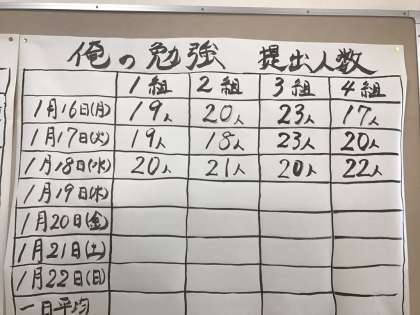 俺の勉強 提出人数
1組 2組 3組 4組
1月16日(月) 19人 20人 23人 17人
1月17日(火) 19人 18人 23人 20人
1月18日(水) 20人 21人 20人 22人
1月19日(木)
1月20日(金)
1月21日(土)
1月22日(日)
一日平均